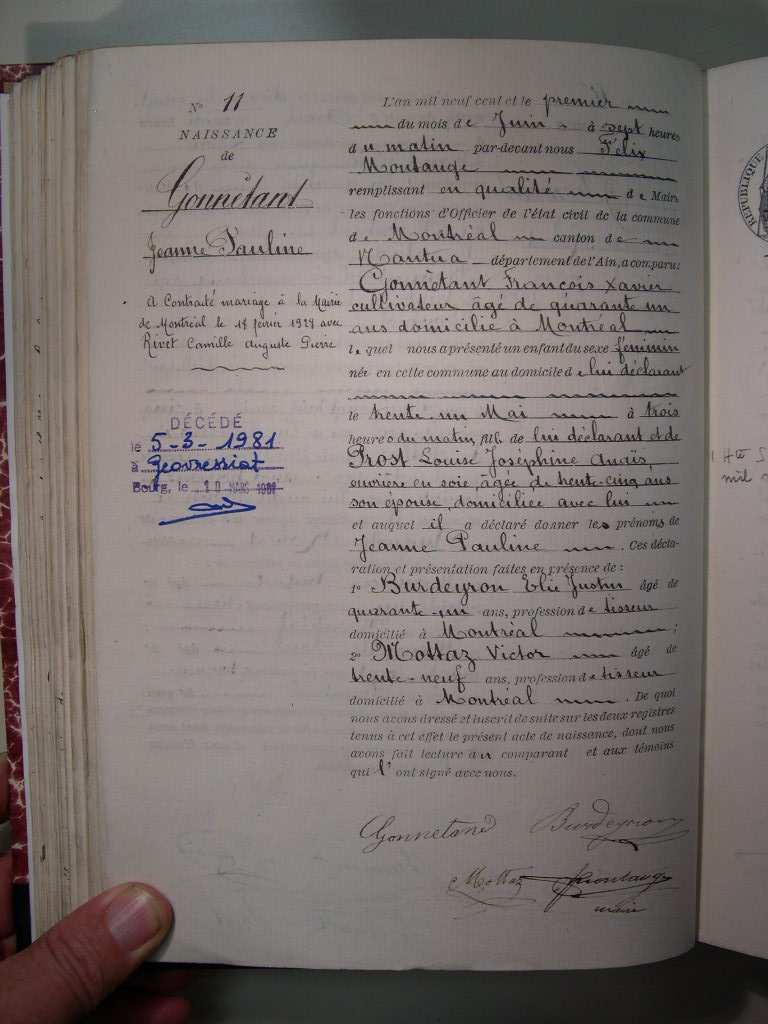 N° 11
NAISSANCE
de
Gonnêtant
Jeanne Pauline
A Contracté mariage à la Mairie
de Montréal le 18 février 1928 avec
Rivet Camille Auguste Pierre
DÉCÉDÉ
le 5-3-1981
à Geovressiat
Bourg, le 10 MARS 1981
L'an mil neuf cent et le premier
du mois de Juin à sept heures
du matin par-devant nous Félix
Montange
remplissant en qualité de Maire
les fonctions d'Officier de l'état civil de la commune
de Montréal canton de
Nantua département de l'Ain, a comparu:
Gonnètant François Xavier
cultivateur âgé de quarante un
ans domicilié à Montréal
lequel nous a présenté un enfant du sexe féminin
née en cette commune au domicile de lui déclarant
le trente un Mai à trois
heures du matin, fille de lui déclarant et de
Prost Louise Joséphine Anaïs,
ouvrière en soie, âgée de trente-cinq ans
son épouse, domiciliée avec lui
et auquel il a déclaré donner les prénoms de
Jeanne Pauline . Ces décla-
ration et présentation faites en présence de :
1° Burdeyron Elie Justin âgé de
quarante-un ans, profession de tisseur
domicilié à Montréal ;
2° Mottaz Victor âgé de
trente-neuf ans, profession de tisseur
domicilié à Montréal . De quoi
nous avons dressé et inscrit de suite sur les deux registres
tenus à cet effet le présent acte de naissance, dont nous
avons fait lecture au comparant et aux témoins
qui l'ont signé avec nous.
Gonnetand Burdeyron
Mottaz Montange
maire
RÉPUBLIQUE
mil